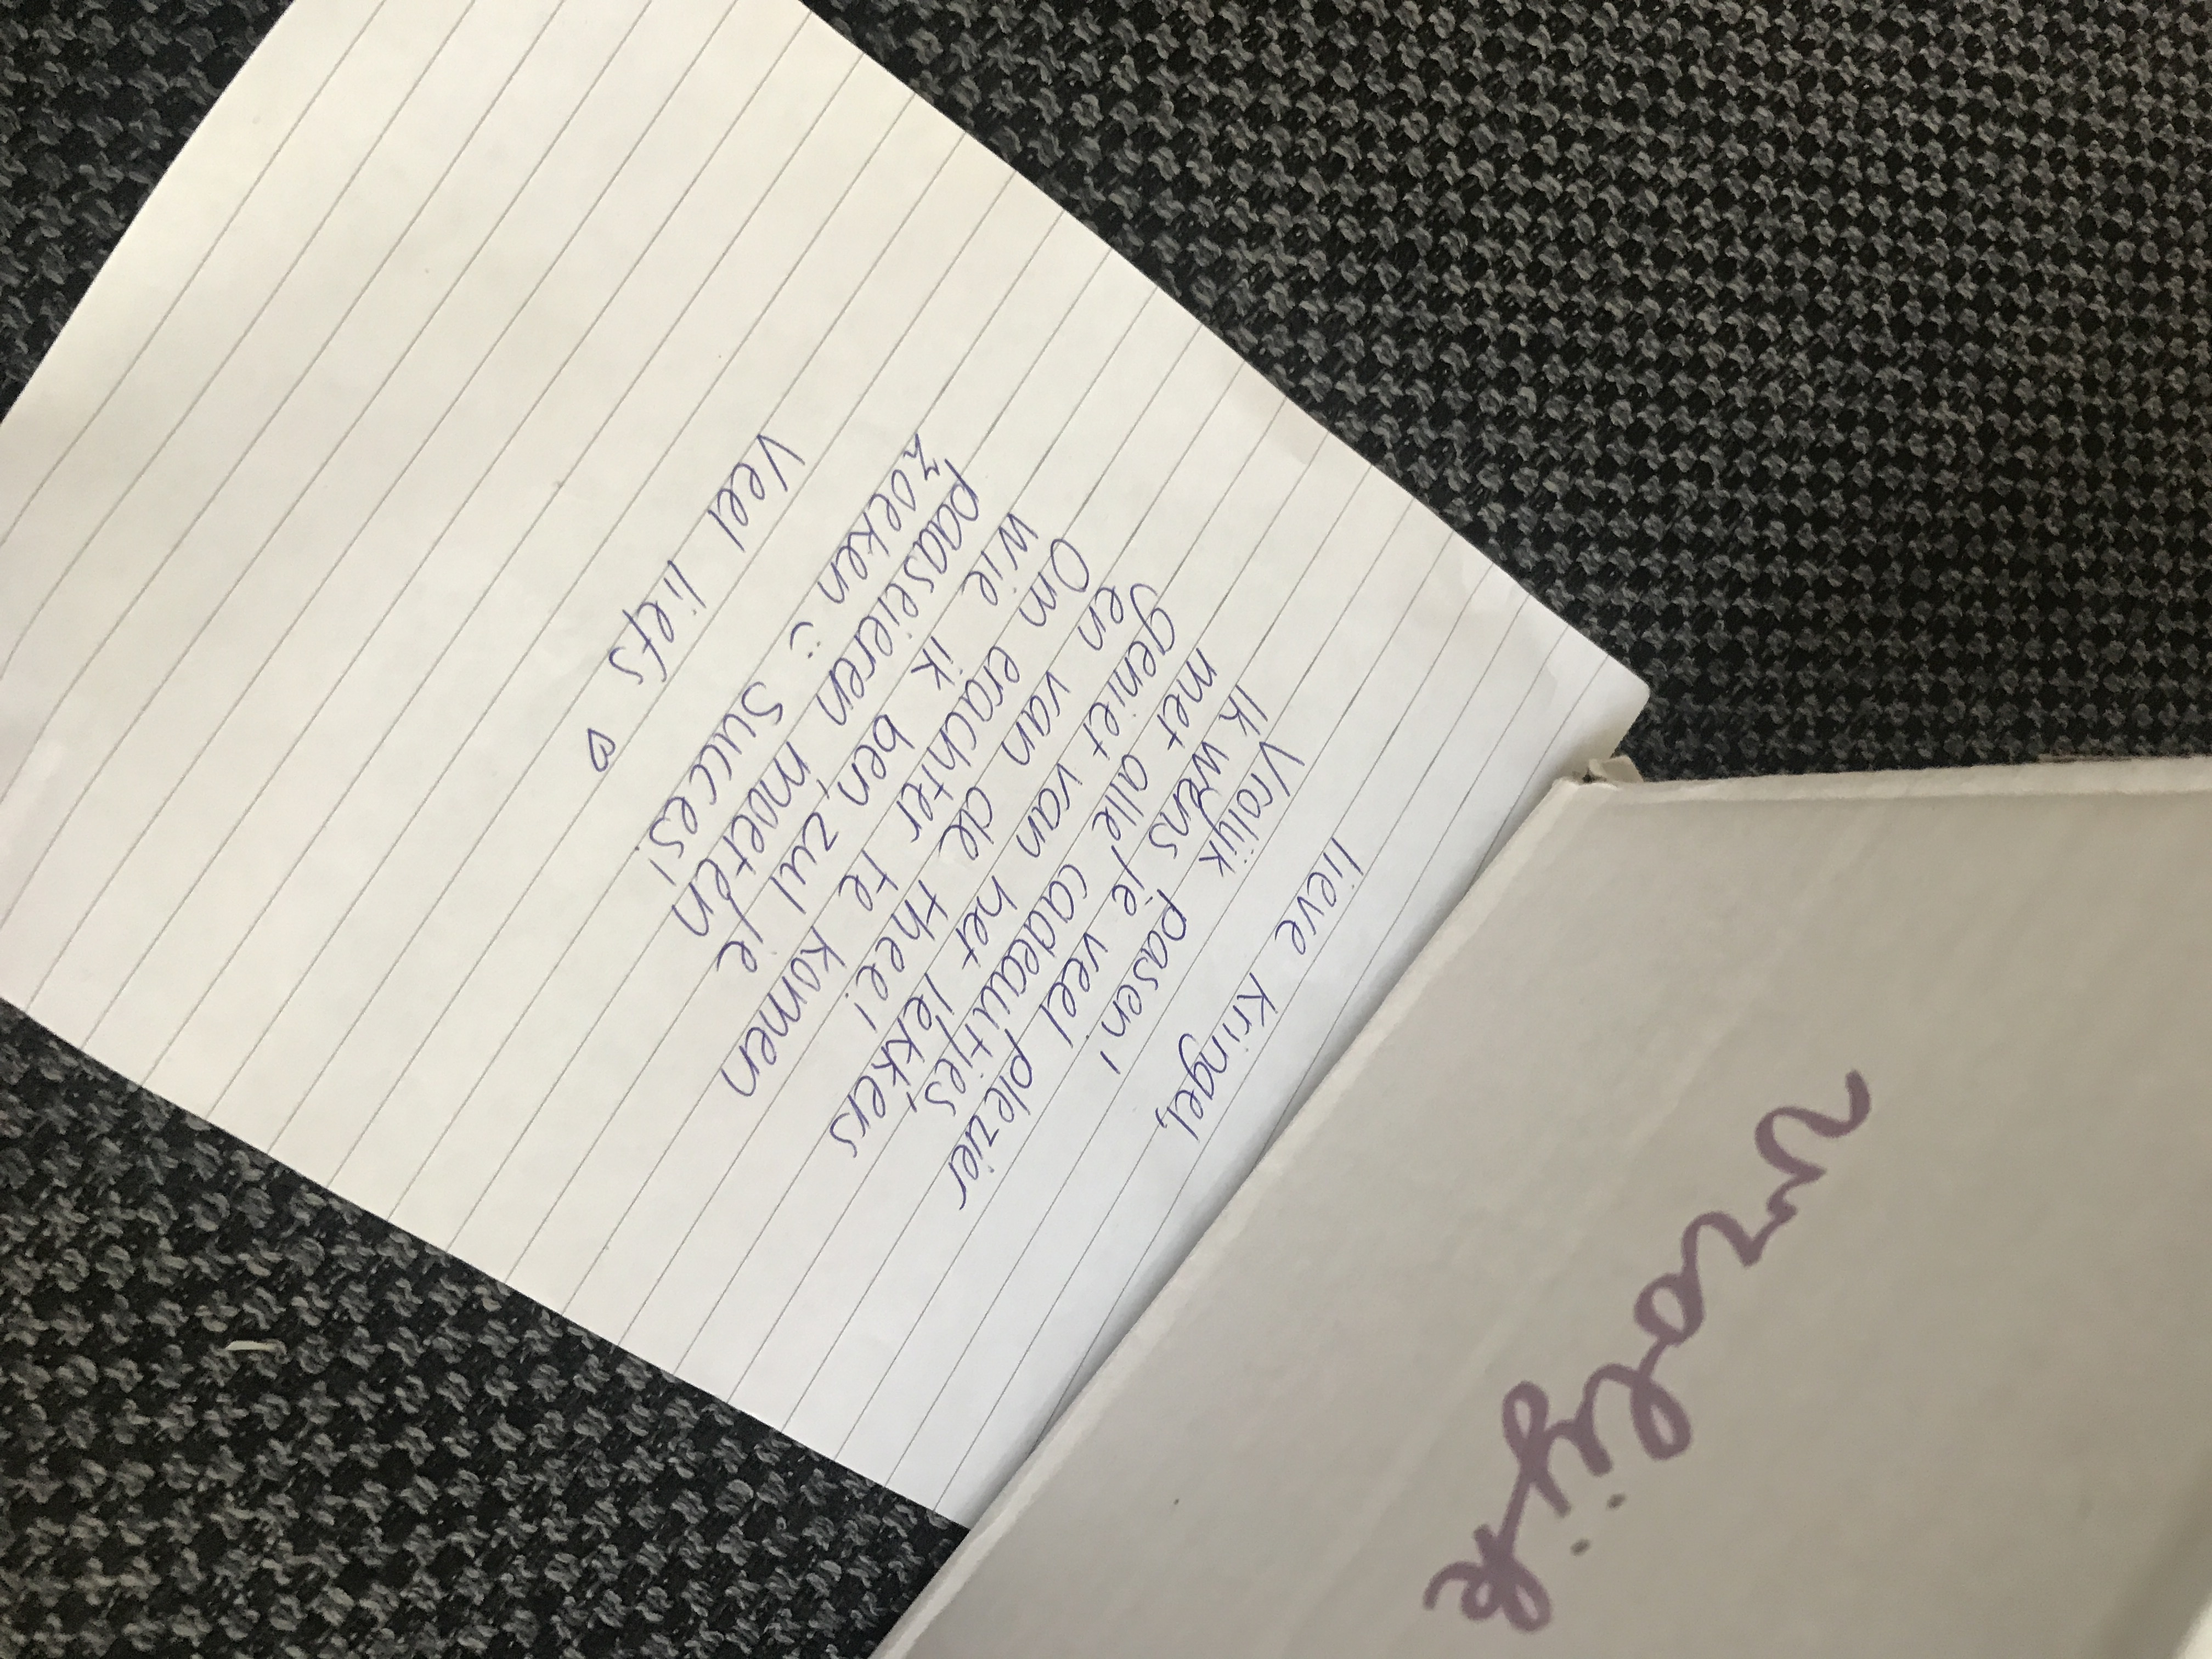 lieve Kringel,
Vrolijk pasen!
Ik wens je veel plezier
met alle cadeautjes,
geniet van het lekkers
en van de thee!
Om erachter te komen
wie ik ben, zul je
paaseieren moeten
zoeken :) Succes!
Veel liefs ♡
vrolijk